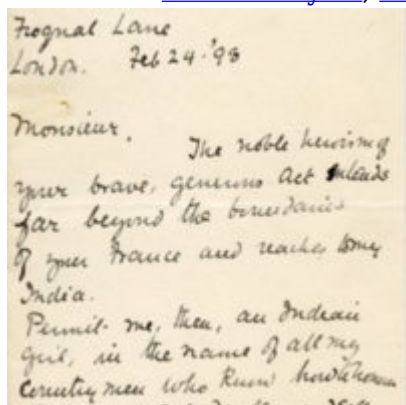 Frognal Lane
London. Feb 24-'98
Monsieur.
The noble heroism of
your brave, generous act extends
far beyond the boundaries
of your France and reaches to my
India.
Permit me, then, an Indian
girl, in the name of all my
countrymen who know how to honour